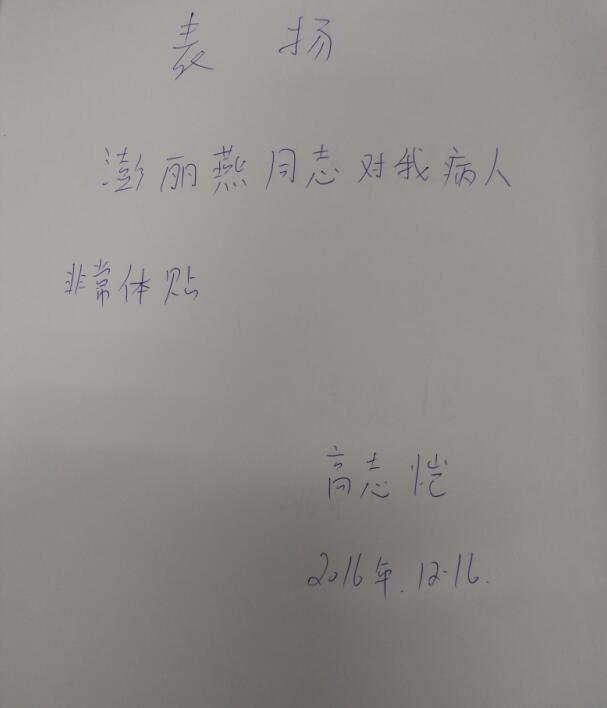 表 扬
澎丽燕同志对我病人
非常体贴
高志恺
2016年.12.16.